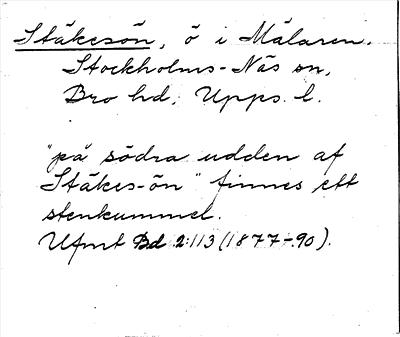 Stäkesön, ö i Mälaren.
Stockholms-Näs sn,
Bro hd, Upps. l.
"på södra udden af
Stäkes-ön" finnes ett
stenkummel.
Ufmt Bd 2:113 (1877-90).